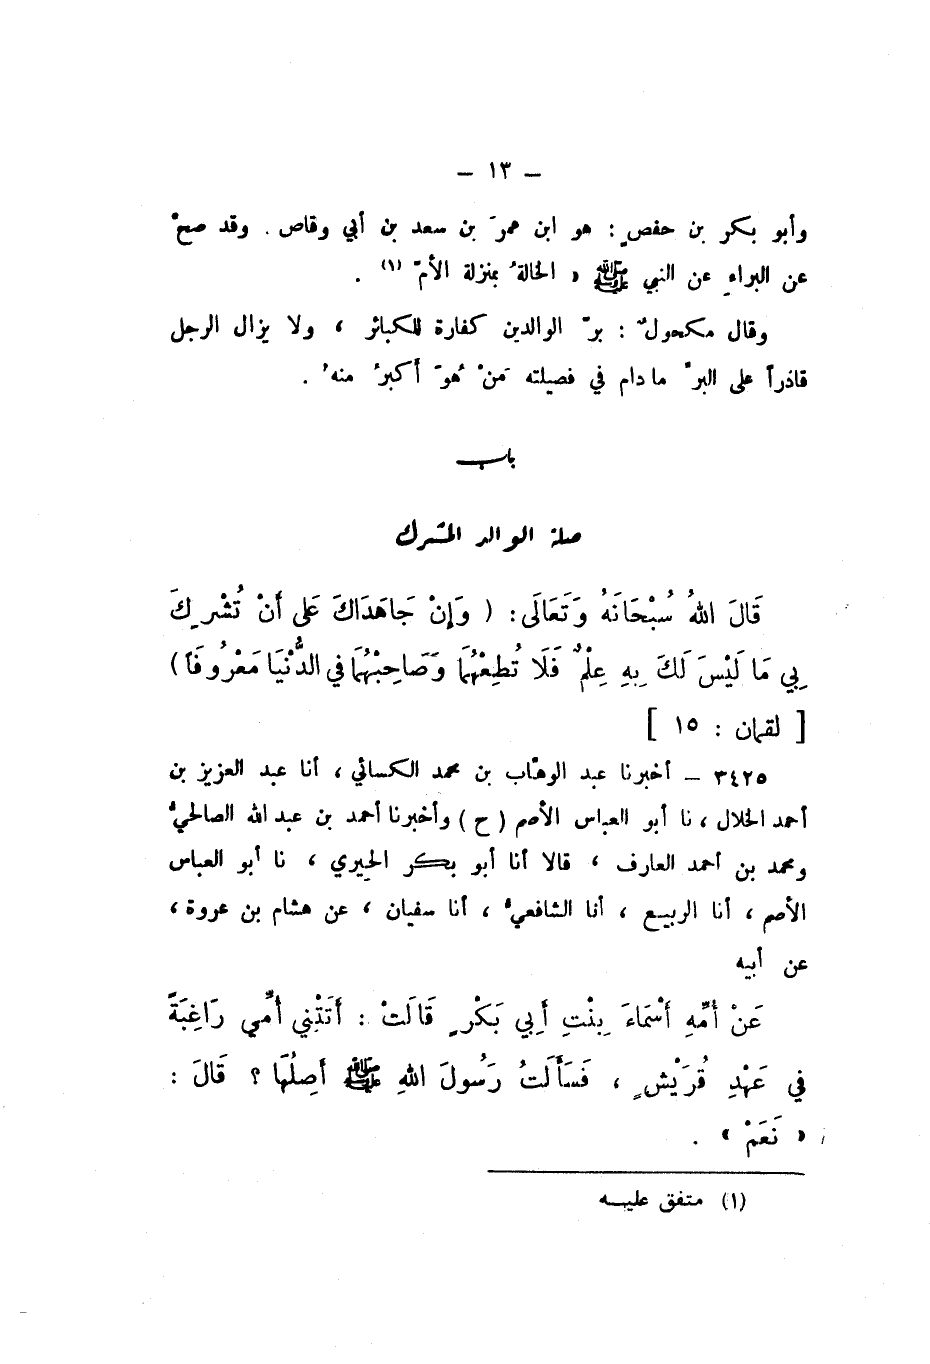 — ١٣ —
وأبو بكر بن حفصٍ : هو ابن عمرَ بن سعد بن أبي وقاص . وقد صحَّ
عن البراءِ عن النبي ﷺ « الخالةُ بمنزلة الأمّ (١) .
وقال مكحولٌ : برّ الوالدين كفارة للكبائر ، ولا يزال الرجل
قادراً على البرّ ما دام في فصيلته مَنْ هُوَ أكبرُ منهُ .
باب
صلة الوالد المشرك
قَالَ اللهُ سُبْحَانَهُ وَتَعَالَى : ( وَإِنْ جَاهَدَاكَ عَلى أَنْ تُشْرِكَ
بِي مَا لَيْسَ لَكَ بِهِ عِلْمٌ فَلَا تُطِعْهُمَا وَصَاحِبْهُمَا في الدُّنْيَا مَعْرُوفَاً )
[ لقمان : ١٥ ]
٣٤٢٥ – أخبرنا عبد الوهّاب بن محمد الكسائي ، أنا عبد العزيز بن
أحمد الخلال ، نا أبو العباس الأصم ( ح ) وأخبرنا أحمد بن عبد الله الصالحيُّ
ومحمد بن أحمد العارف ، قالا أنا أبو بكر الحيري ، نا أبو العباس
الأصم ، أنا الربيع ، أنا الشافعيُّ ، أنا سفيان ، عن هشام بن عروة ،
عن أبيه
عَنْ أُمِّهِ أَسْمَاءَ بِنْتِ أَبِي بَكْرٍ قَالَتْ : أَتَتْنِي أُمِّي رَاغِبَةً
فِي عَهْدِ قُرَيْشٍ ، فَسَأَلَتُ رَسُولَ اللهِ ﷺ أَصِلُهَا ؟ قَالَ :
« نَعَمْ » .
(١) متفق عليه